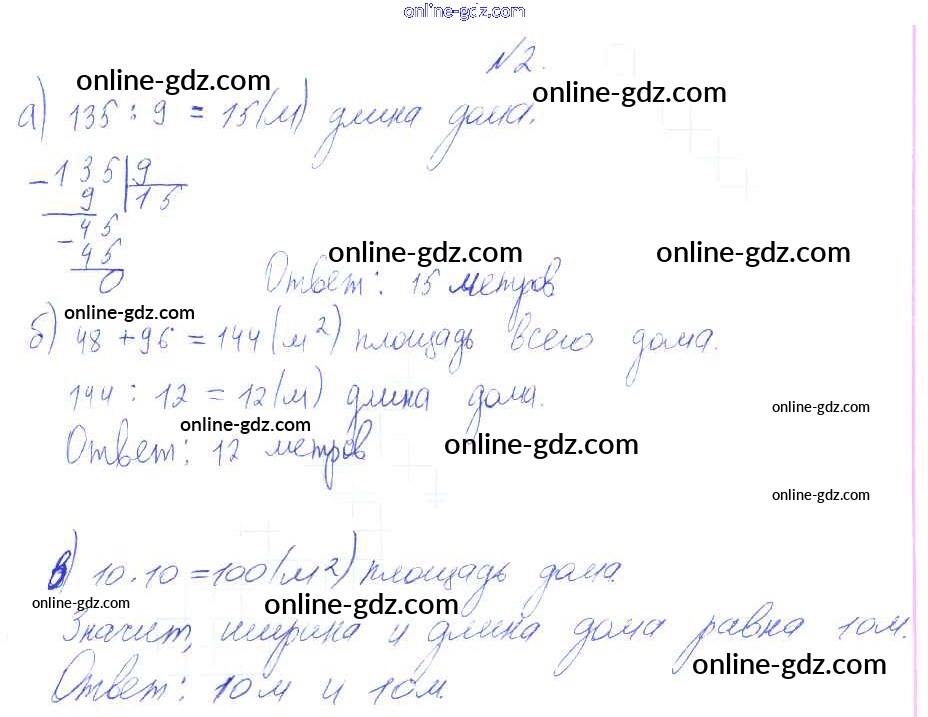 online-gdz.com
N2.
online-gdz.com
online-gdz.com
а) 135 : 9 = 15(м) длина дома.
135 | 9
9 | 15
45
45
0
online-gdz.com
online-gdz.com
Ответ: 15 метров
online-gdz.com
б) 48 + 96 = 144 (м²) площадь всего дома.
144 : 12 = 12(м) длина дома.
online-gdz.com
online-gdz.com
Ответ: 12 метров
online-gdz.com
online-gdz.com
в) 10 · 10 = 100(м²) площадь дома
online-gdz.com
online-gdz.com
Значит, ширина и длина дома равна 10м.
online-gdz.com
Ответ: 10м и 10м.